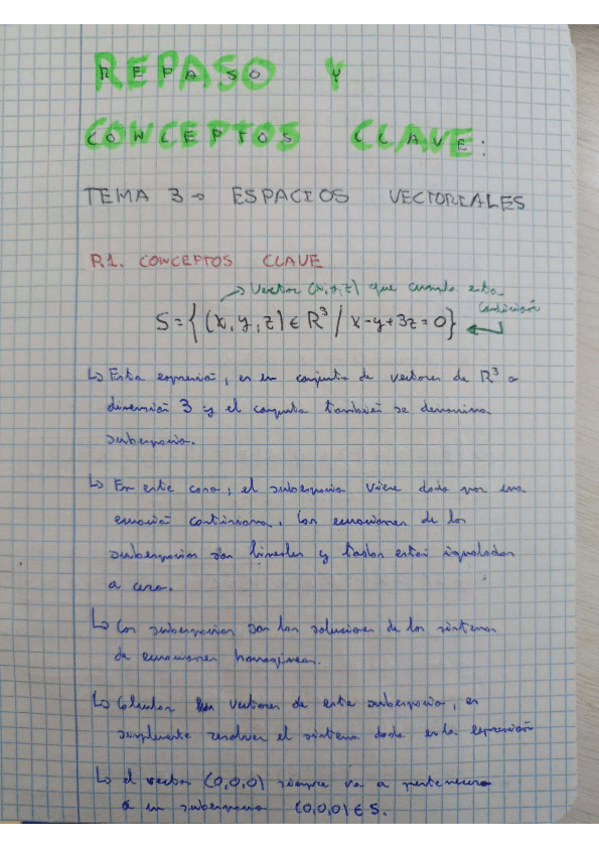 REPASO Y
CONCEPTOS CLAVE:
TEMA 3 → ESPACIOS VECTORIALES
R1. CONCEPTOS CLAVE
→ Vector (x,y,z) que cumple esta condición
S = {(x,y,z) ∈ R³ / x-y+3z=0}
↳ Esta expresión, es un conjunto de vectores de R³ o
dimensión 3 y el conjunto también se denomina
subespacio.
↳ En este caso, el subespacio viene dado por una
ecuación cartesiana. Las ecuaciones de los
subespacios son lineales y todas están igualadas
a cero.
↳ Los subespacios son las soluciones de los sistemas
de ecuaciones homogéneas.
↳ Calcular vectores de este subespacio, es
simplemente resolver el sistema dado en la expresión
↳ el vector (0,0,0) siempre va a pertenecer
a un subespacio (0,0,0) ∈ S.